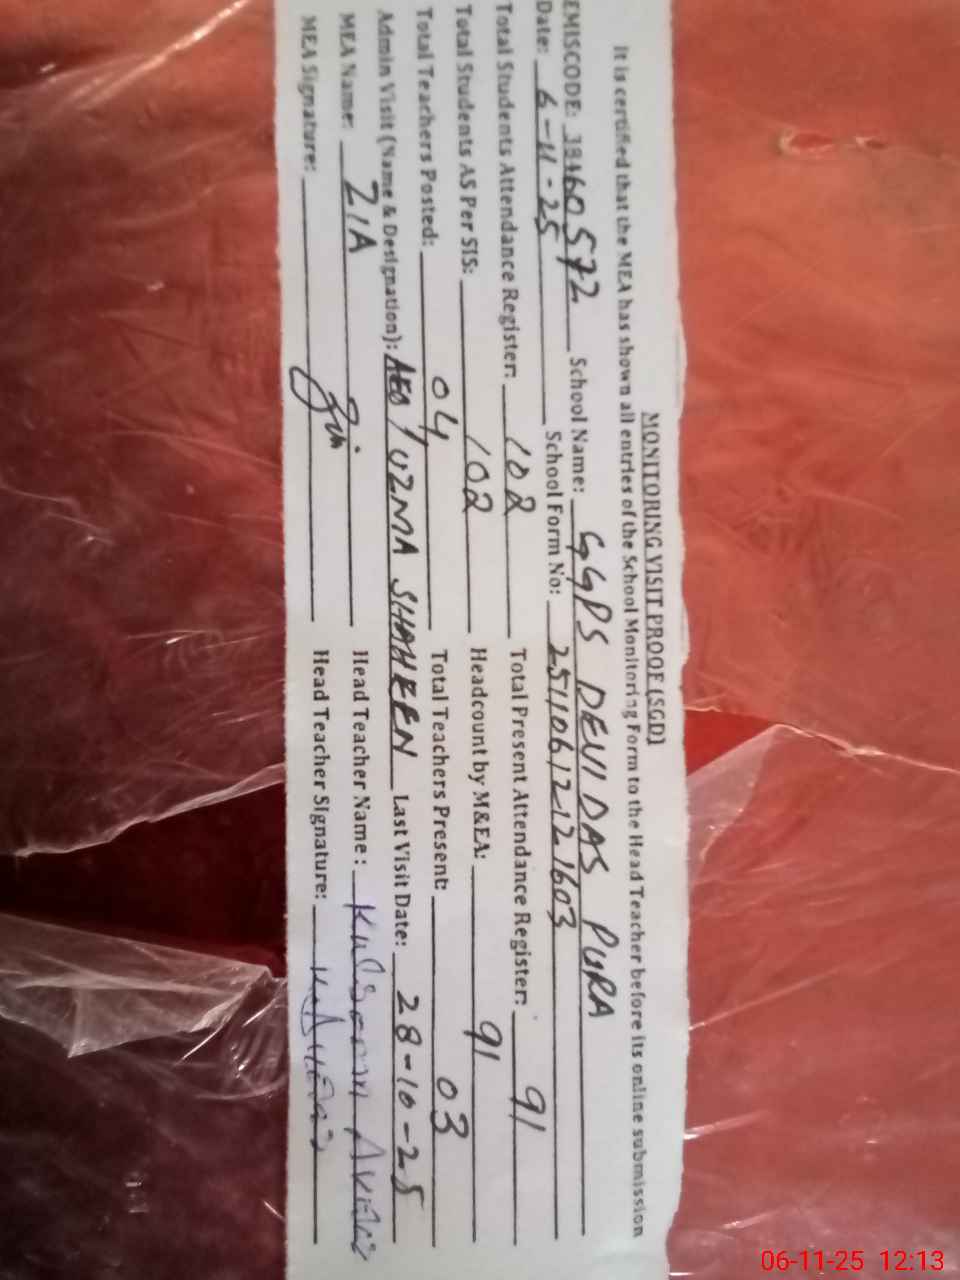 MONITORING VISIT PROOF (SGD)
It is certified that the MEA has shown all entries of the School Monitoring Form to the Head Teacher before its online submission
EMISCODE: 38460572 School Name: GGPS DEVI DAS PURA
Date: 6-11-25 School Form No: 2511061221603
Total Students Attendance Register: 102 Total Present Attendance Register: 91
Total Students AS Per SIS: 102 Headcount by M&EA: 91
Total Teachers Posted: 04 Total Teachers Present: 03
Admin Visit (Name & Designation): AEO / UZMA SHAHEEN Last Visit Date: 28-10-25
MEA Name: ZIA Head Teacher Name: Kulsoom
MEA Signature: Head Teacher Signature:
06-11-25 12:13